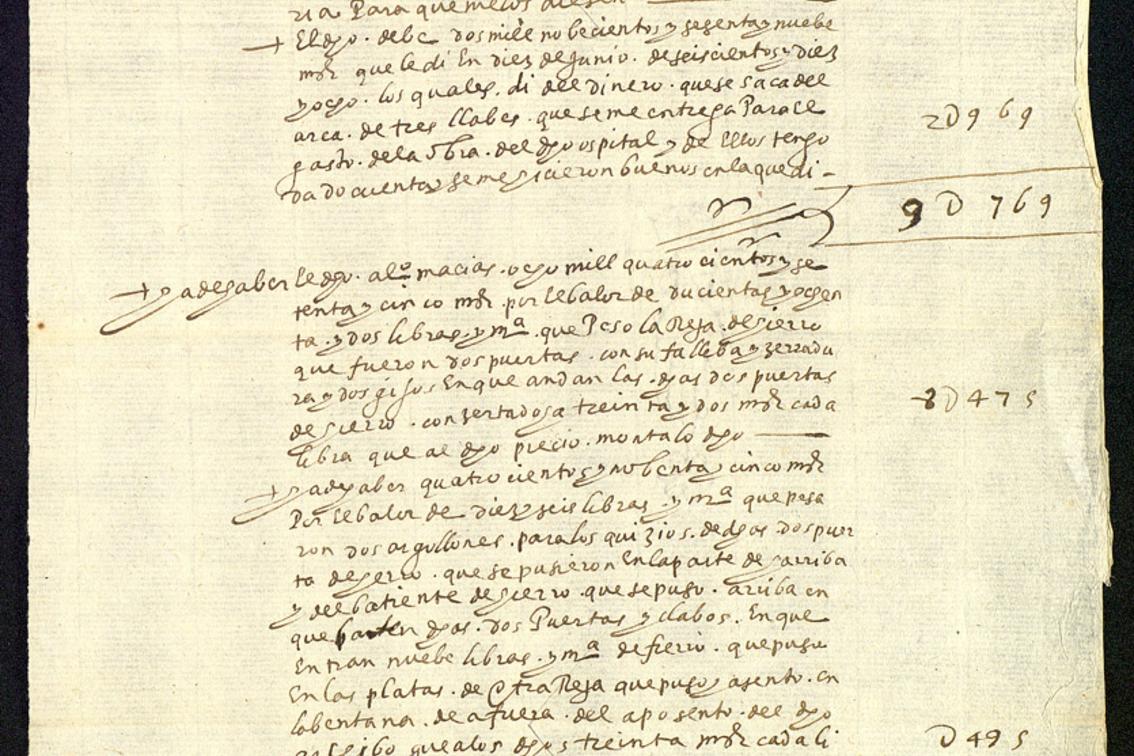 ria Para que me los diesen
El dho. debe dos mill nobecientos y sesenta y nuebe
mrs que le di En diez de Junio. de seiscientos y diez
y ocho. los quales. di del dinero. que se saca del
arca. de tres llabes. que se me entrega Para el
gasto. de la obra. del dho ospital y de Ellos tengo
dado cuenta y se me hicieron buenos en la que di -
2D969
9D769
y a de haber el dho. alº macias. ocho mill quatrocientos y se
tenta y cinco mrs. por el balor de ducientas y ochen
ta. y dos libras. y mª. que Peso la Reja. de hierro
que fueron dos puertas. con su falleba y zerradu
ra y dos En que andan las. dhas dos puertas
de hierro. conzertados a treinta y dos mrs cada
libra que al dho precio. monta lo dho
8D475
y a de haber quatrocientos y nobenta y cinco mrs
Por el balor de diez y seis libras. y mª que pesa
ron dos argollones. para los quizios. de dhas. dos puer
ta de yerro. que se pusieron En la parte de harriba
y del batiente de hierro. que se puso. arriba en
que baten dhas. dos Puertas y clabos. En que
Entran nuebe libras. y mª de fierro. que puso
En las platas. de otra Reja que puso y asento. en
la bentana. de afuera. del aposento. del dho
que a los dhos treinta mrs cada li
D495